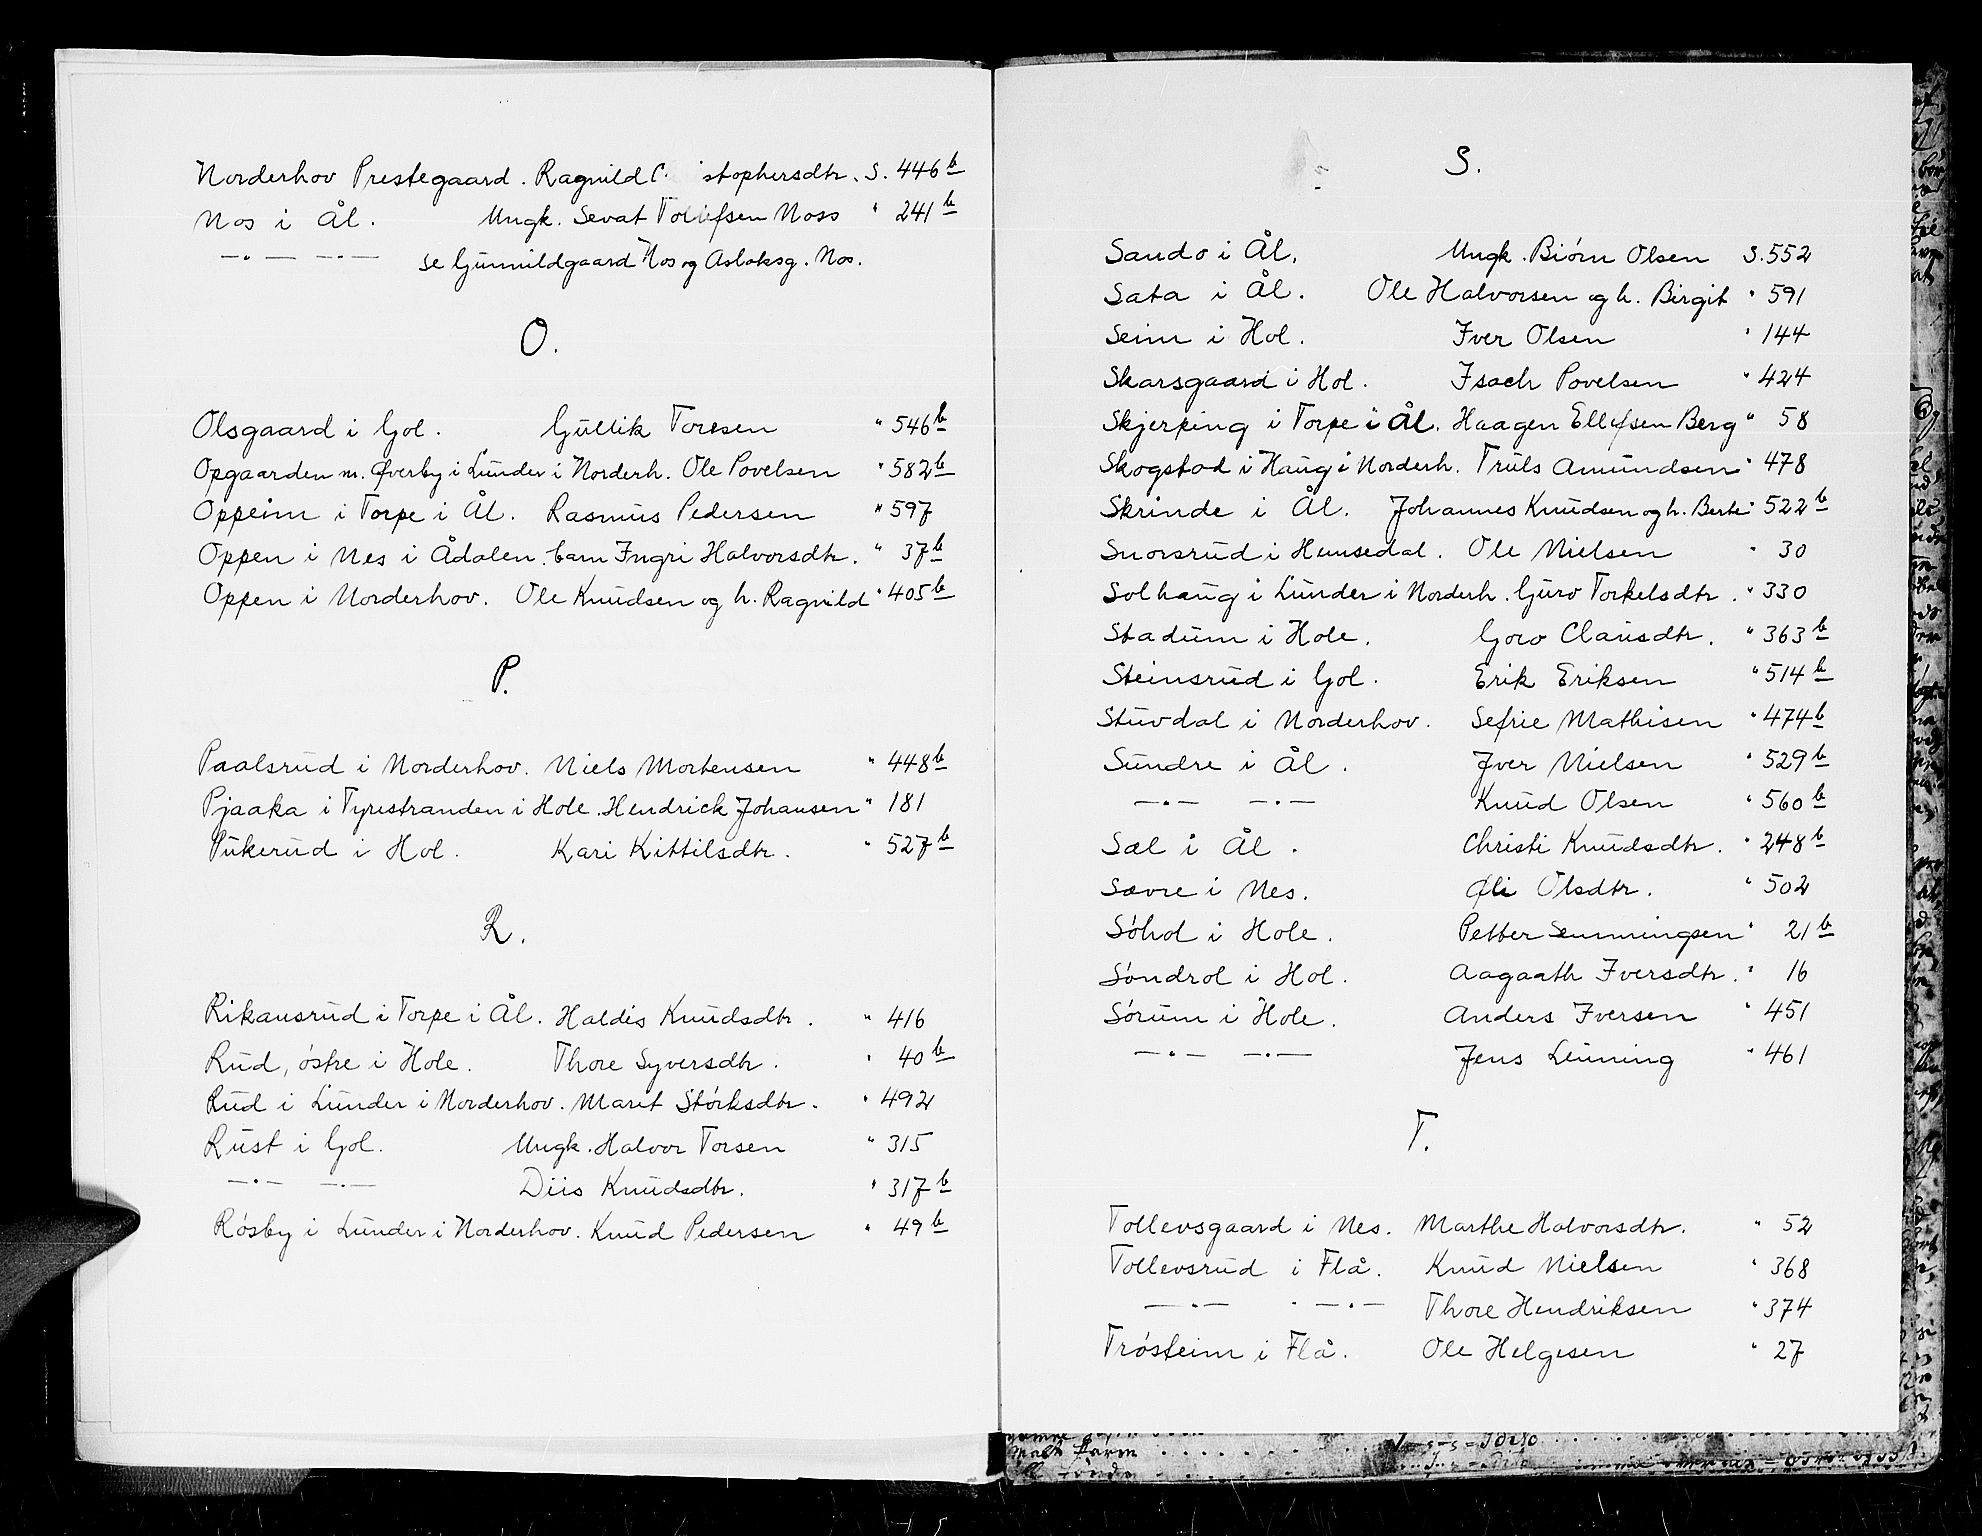 Norderhov Prestegaard. Ragnild C stophersdtr. S. 446 b
Nos i Ål. Ungk. Sevat Tollefsen Noss " 241 b
—"— —"— se Gunnildgaard Nos og Aslaksg. Nos.
O.
Olsgaard i Gol. Gullik Toresen " 546 b
Opgaarden m. Øverby i Lunder i Norderh. Ole Povelsen " 582 b
Oppeim i Torpe i Ål. Rasmus Pedersen " 597
Oppen i Nes i Ådalen. Barn Ingri Halvorsdtr. " 37 b
Oppen i Norderhov. Ole Knudsen og h. Ragnild " 405 b
P.
Paalsrud i Norderhov. Niels Mortensen " 448 b
Pjaaka i Tyristranden i Hole. Hendrick Johansen " 181
Pukerud i Hol. Kari Kittilsdtr. " 527 b
R.
Rikansrud i Torpe i Ål. Haldis Knudsdtr. " 416
Rud, østre i Hole. Thore Syversdtr. " 40 b
Rud i Lunder i Norderhov. Marit Størksdtr. " 492
Rust i Gol. Ungk. Halvor Torsen " 315
—"— —"— Diis Knudsdtr. " 317 b
Røsby i Lunder i Norderhov. Knud Pedersen " 49 b
S.
Sando i Ål. Ungk. Biørn Olsen S. 552
Sata i Ål. Ole Halvorsen og h. Birgit " 591
Seim i Hol. Iver Olsen " 144
Skarsgaard i Hol. Isach Povelsen " 424
Skjerping i Torpe i Ål. Haagen Ellefsen Berg " 58
Skogstad i Haug i Norderh. Truls Amundsen " 478
Skrinde i Ål. Johannes Knudsen og h. Berte " 522 b
Snorsrud i Hemsedal. Ole Nielsen " 30
Solhaug i Lunder i Norderh. Guro Torkelsdtr. " 330
Stadum i Hole. Goro Clausdtr. " 363 b
Steinsrud i Gol. Erik Eriksen " 514 b
Stuvdal i Norderhov. Sefrie Mathisen " 474 b
Sundre i Ål. Iver Nielsen " 529 b
—"— —"— Knud Olsen " 560 b
Sæl i Ål. Christi Knudsdtr. " 248 b
Sævre i Nes. Øli Olsdtr. " 502
Søhol i Hole. Petter Senningsen " 21 b
Søndrol i Hol. Aagaath Iversdtr. " 16
Sørum i Hole. Anders Iversen " 451
—"— —"— Jens Leuning " 461
T.
Tollevsgaard i Nes. Marthe Halvorsdtr. " 52
Tollevsrud i Flå. Knud Nielsen " 368
—"— —"— Thore Hendriksen " 374
Trøsteim i Flå. Ole Helgesen " 27